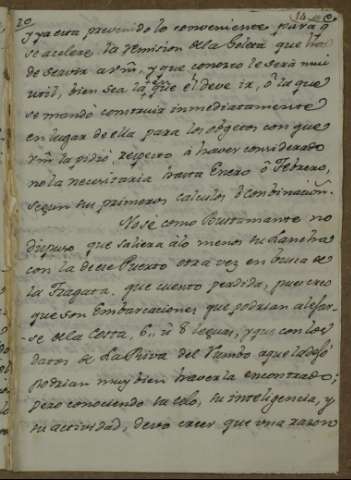 y ya esta prevenido lo conveniente para q.
se acelere la remision de la Goleta que ha
de servir a vm, y que conozco le será mui
util, bien sea la que él deve ir, ó la que
se mandó construir inmediatamente
en lugar de ella para los objetos con que
vm la pidió respecto á haver considerado
no la necesitaria hasta Enero ó Febrero,
segun sus primeros calculos ó combinacion.
No sé como Bustamante no
dispuso que saliera á lo menos su Lancha
con la de ese Puerto otra vez en busca de
la Fragata, que cuento perdida, pues creo
que son Embarcaciones que podrian alejar-
se de la Costa, 6,, ú 8 leguas, y que con los
datos de La Riva del rumbo a que la dejó
podrian muy bien haverla encontrado;
pero conociendo su celo, su inteligencia, y
su actividad, devo creer que una razon